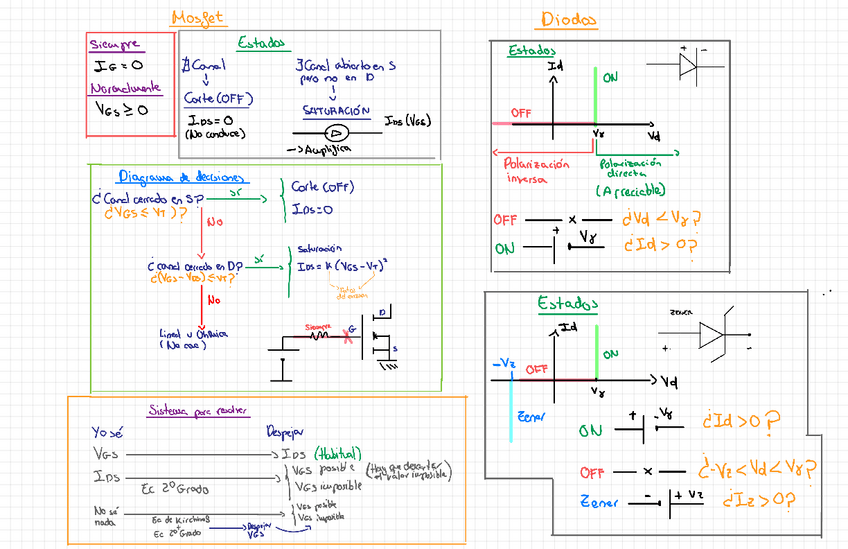 Mosfet
Siempre
IG = 0
Normalmente
VGS ≥ 0
Estados
∄ Canal
Corte (OFF)
IDS = 0
(No conduce)
∃ Canal abierto en S
pero no en D
SATURACIÓN
IDS (VGS)
→ Amplifica
Diagrama de decisiones
¿Canal cerrado en S?
¿VGS ≤ VT)?
Sí
Corte (OFF)
IDS = 0
No
¿Canal cerrado en D?
¿(VGS - VDS) ≤ VT?
Sí
Saturación
IDS = K (VGS - VT)²
No
Lineal u Ohmica
(No cae)
Siempre
G
D
S
Sistema para resolver
Yo sé
Despejar
VGS
IDS (Habitual)
IDS
Ec 2º Grado
VGS posible
VGS imposible
(Hay que descartar
el valor imposible)
No sé
nada
Ec de Kirchhoff
+
Ec 2º Grado
Despejar
VGS
VGS posible
VGS imposible
Diodos
Estados
Id
ON
OFF
Vγ
Vd
+ -
Polarización
inversa
Polarización
directa
(Apreciable)
OFF x ¿Vd < Vγ?
ON + - Vγ ¿Id > 0?
Estados
Id
-Vz
OFF
ON
Vγ
Vd
Zener
ZENER
+ -
ON + - Vγ ¿Id > 0?
OFF x ¿-Vz < Vd < Vγ?
Zener - + Vz ¿Iz > 0?